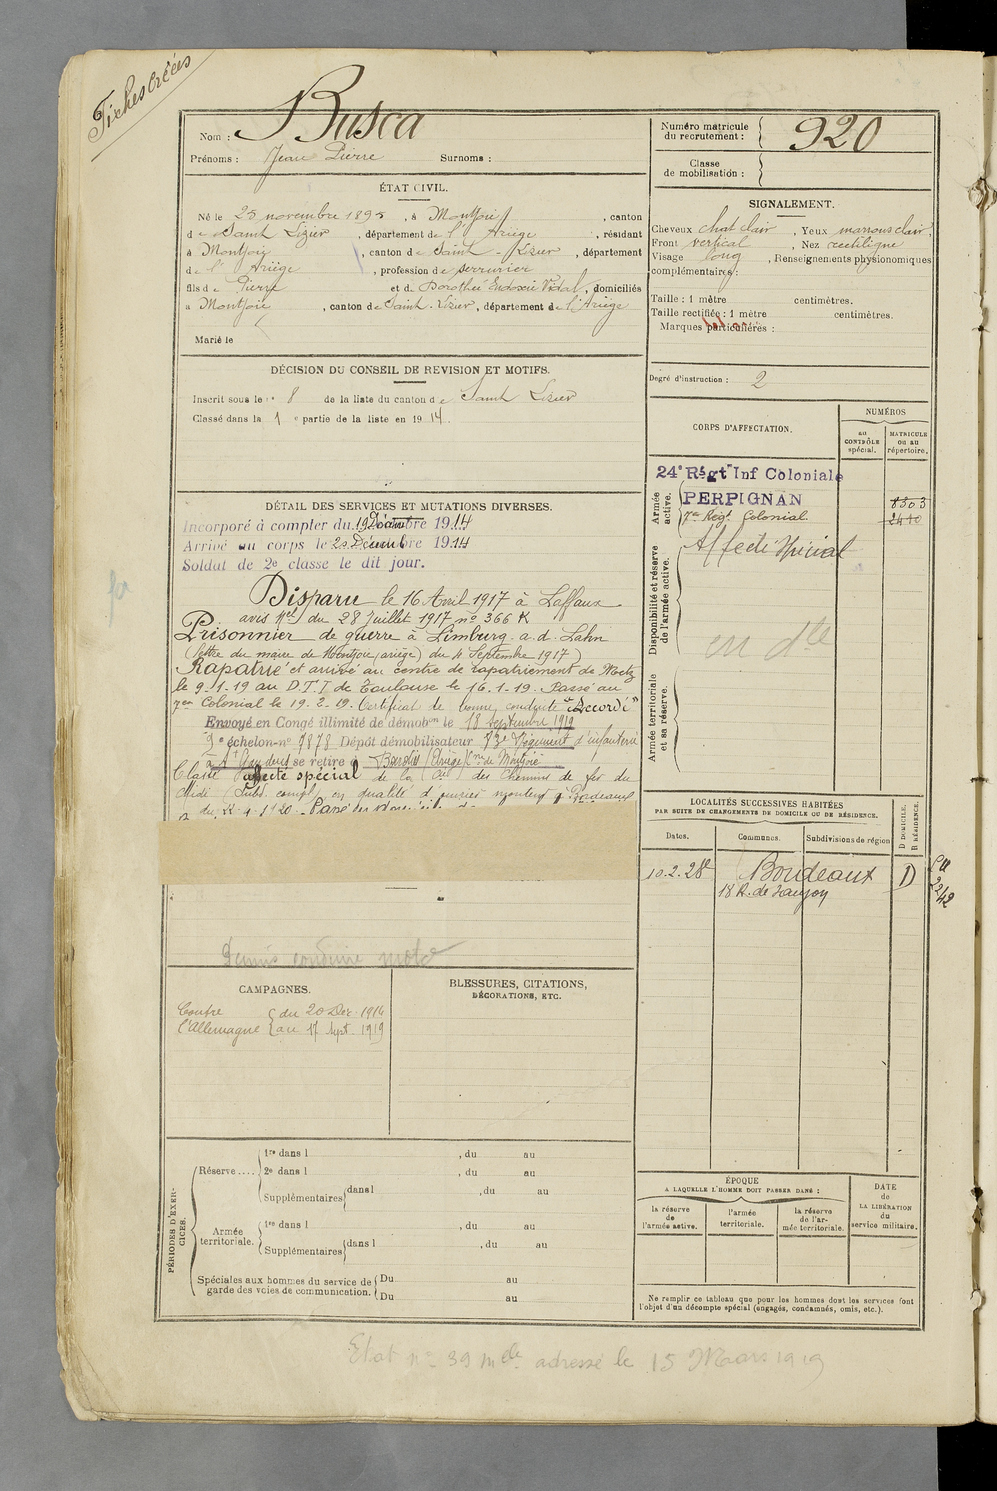 Fiches créées
Nom : Busca
Prénoms : Jean Pierre Surnoms :
Numéro matricule du recrutement : 920
Classe de mobilisation :
ÉTAT CIVIL.
Né le 25 novembre 1895, à Montjoie, canton
de Saint Lizier, département de l'Ariège, résidant
à Montjoie, canton de Saint-Lizier, département
de l'Ariège, profession de serrurier
fils de Pierre et de Dorothée Vidal, domiciliés
à Montjoie, canton de Saint-Lizier, département de l'Ariège
Marié le
SIGNALEMENT.
Cheveux chat clair, Yeux marrons clair,
Front vertical, Nez rectiligne
Visage long, Renseignements physionomiques
complémentaires :
Taille : 1 mètre centimètres.
Taille rectifiée : 1 mètre centimètres.
Marques particulières :
Degré d'instruction : 2
DÉCISION DU CONSEIL DE REVISION ET MOTIFS.
Inscrit sous le n° 8 de la liste du canton de Saint Lizier
Classé dans la 1e partie de la liste en 1914.
CORPS D'AFFECTATION.
NUMÉROS
au CONTRÔLE spécial.
MATRICULE ou au répertoire.
Armée active.
24e Régt Inf Coloniale
PERPIGNAN 8303
7e Régt Colonial 2410
Disponibilité et réserve de l'armée active.
Affecté Spécial
Armée territoriale et sa réserve.
DÉTAIL DES SERVICES ET MUTATIONS DIVERSES.
Incorporé à compter du 19 Décembre 1914
Arrivé au corps le 20 Décembre 1914
Soldat de 2e classe le dit jour.
Disparu le 16 Avril 1917 à Laffaux
avis Mel du 28 Juillet 1917 n° 366 K
Prisonnier de guerre à Limburg a. d. Lahn
(lettre du maire de Montjoie (ariège) du 4 Septembre 1917)
Rapatrié et arrivé au centre de rapatriement de Metz
le 9-1-19 au D.T.I de Toulouse le 16-1-19. Passé au
7em Colonial le 19-2-19. Certificat de bonne conduite "Accordé"
Envoyé en Congé illimité de démobon le 18 Septembre 1919
2e échelon-n° 7878 Dépôt démobilisateur 73e Régiment d'infanterie
se retire à (Ariège) Cne de Montjoie
Classé affecté spécial de la Cie des Chemins de fer du
Midi (Subd. compl) en qualité d'ouvrier monteur à Bordeaux
LOCALITÉS SUCCESSIVES HABITÉES
PAR SUITE DE CHANGEMENTS DE DOMICILE OU DE RÉSIDENCE.
Dates. Communes. Subdivisions de région
D DOMICILE. R RÉSIDENCE.
10.2.28 Bordeaux D
18 R. de
Permis conduire moto
CAMPAGNES.
Contre du 20 Déc. 1914
l'Allemagne au 17 Sept. 1919
BLESSURES, CITATIONS,
DÉCORATIONS, ETC.
PÉRIODES D'EXERCICES.
Réserve....
1re dans l , du au
2e dans l , du au
Supplémentaires dans l , du au
Armée territoriale.
1re dans l , du au
Supplémentaires dans l , du au
Spéciales aux hommes du service de garde des voies de communication.
Du au
Du au
ÉPOQUE
A LAQUELLE L'HOMME DOIT PASSER DANS :
la réserve de l'armée active.
l'armée territoriale.
la réserve de l'armée territoriale.
DATE de LA LIBÉRATION du service militaire.
Ne remplir ce tableau que pour les hommes dont les services font
l'objet d'un décompte spécial (engagés, condamnés, omis, etc.).
Etat n° 39 mle adressé le 15 Mars 1919